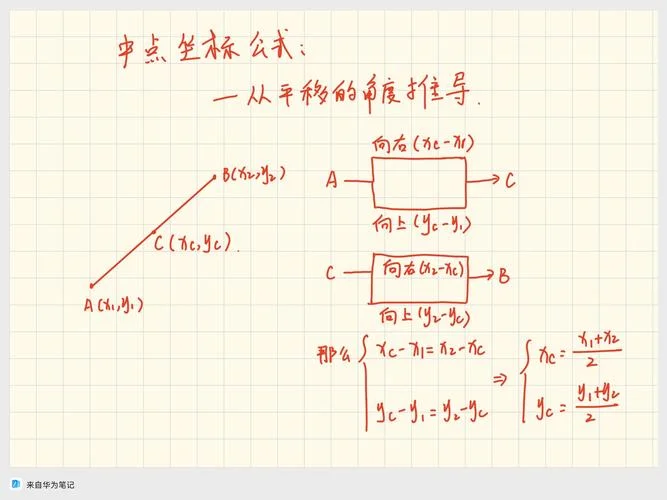 中点坐标公式:
—从平移的角度推导.
B(x2,y2)
C(xc,yc).
A(x1,y1)
向右(xc-x1)
A → C
向上(yc-y1)
C 向右(x2-xc) → B
向上(y2-yc)
那么 { xc-x1=x2-xc ⇒ { xc=x1+x2/2
yc-y1=y2-yc yc=y1+y2/2
来自华为笔记